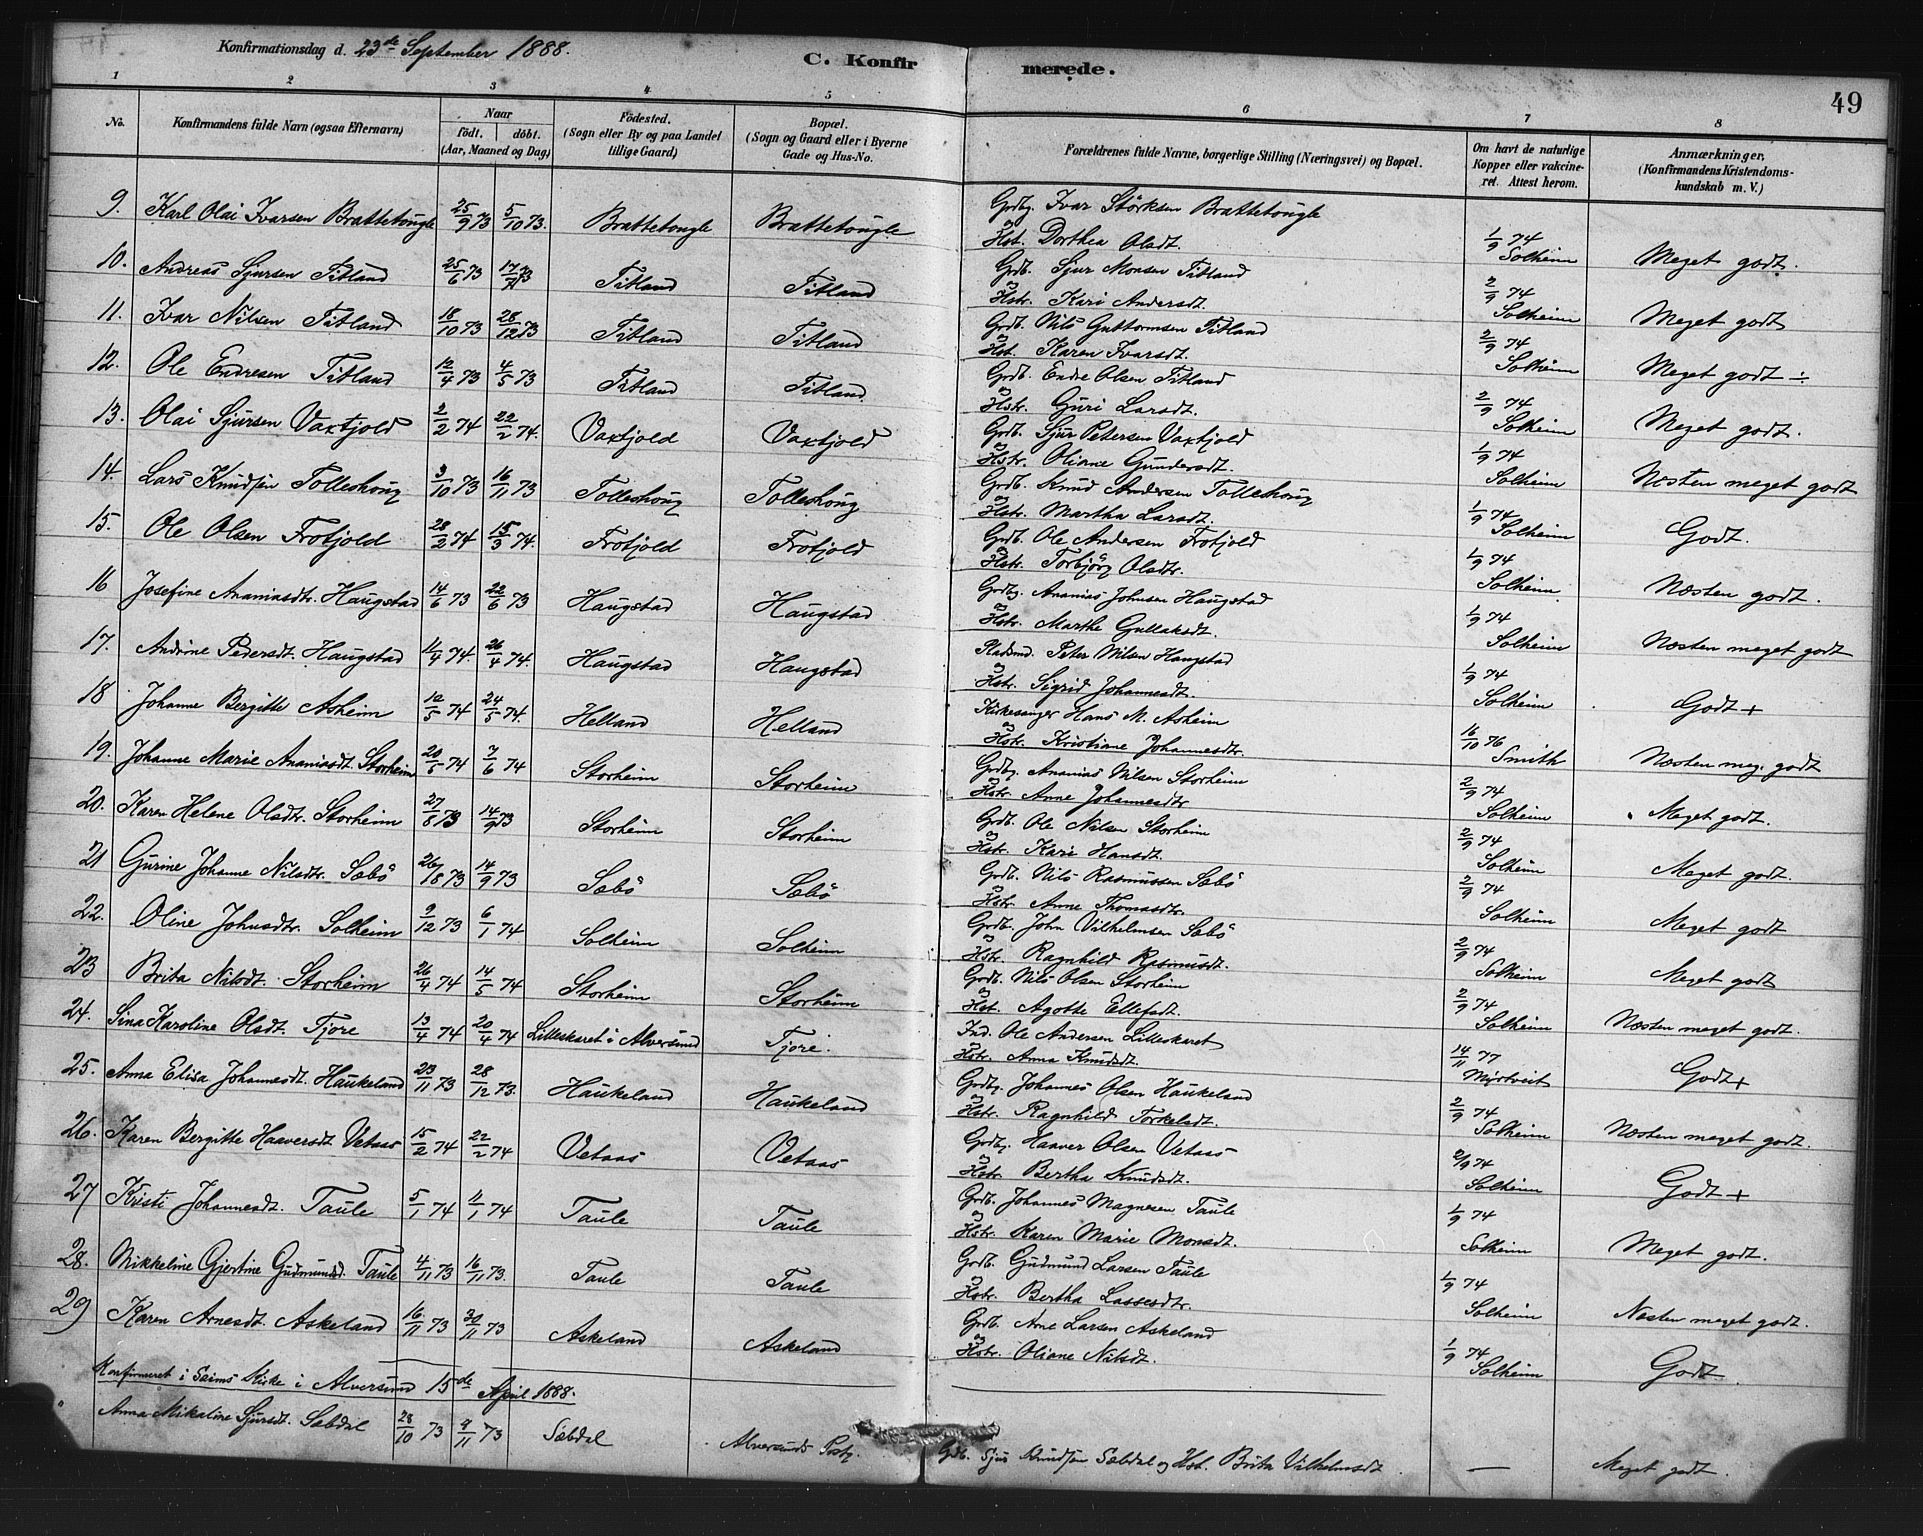 Konfirmationsdag d. 23de September 1888.
C. Konfirmerede.
49
1 2 3 4 5 6 7 8
No. Konfirmandens fulde Navn (ogsaa Efternavn) Naar født. døbt. (Aar, Maaned og Dag) Födested. (Sogn eller By og paa Landet tillige Gaard) Bopæl. (Sogn og Gaard eller i Byerne Gade og Hus-No. Forældrenes fulde Navne, borgerlige Stilling (Næringsvei) og Bopæl. Om havt de naturlige Kopper eller vakcineret. Attest herom. Anmærkninger, (Konfirmandens Kristendomskundskab m. V.)
9. Karl Olai Ivarsen Brattetougle 25/9 73 5/10 73. Brattetougle Brattetougle Grdbg. Ivar Störksen Brattetougle
og Hst. Dorthea Olsdt. 1/9 74 Solheim Meget godt.
10. Andreas Sjursen Titland 25/6 73 17/7 73 Titland Titland Grdb. Sjur Monsen Titland
og Hstr. Kari Andersdt. 2/9 74 Solheim Meget godt
11. Ivar Nilsen Titland 18/10 73 28/12 73 Titland Titland Grdb. Nils Guttormsen Titland
og Hst. Karen Ivarsdt. 2/9 74 Solheim Meget godt ÷
12. Ole Endresen Titland 12/4 73 4/5 73 Titland Titland Grdb. Endre Olsen Titland
og Hstr. Guri Larsdt. 2/9 74 Solheim Meget godt.
13. Olai Sjursen Vaxtjold 2/2 74 22/2 74. Vaxtjold Vaxtjold Grdb. Sjur Petersen Vaxtjold
og Hstr. Oliane Gundersdt. 1/9 74 Solheim Næsten meget godt
14. Lars Knudsen Tolleshoug 3/10 73 16/11 73 Tolleshoug Tolleshoug Grdb. Knud Andersen Tolleshoug
og Hstr. Martha Larsdt. 1/9 74 Solheim Godt.
15. Ole Olsen Frotjold 28/2 74 15/3 74. Frotjold Frotjold Grdb. Ole Andersen Frotjold
og Hstr. Torbjörg Olsdtr. 1/9 74 Solheim Næsten godt.
16 Josefine Ananiasdtr. Haugstad 14/6 73 22/6 73 Haugstad Haugstad Grdbg. Ananias Johnsen Haugstad
og Hstr. Marthe Gullaksdt. 1/9 74 Solheim Næsten meget godt
17. Andrine Pedersdt. Haugstad 11/4 74. 26/4 74. Haugstad Haugstad Pladsmd. Peter Nilsen Haugstad
og Hstr. Sigrid Johannesdt. 1/9 74 Solheim Godt +
18. Johanne Bergitte Asheim 12/5 74 24/5 74. Helland Helland Kirkesanger Hans M. Asheim
og Hstr. Kristiane Johannesdtr. 16/10 76 Smith Næsten meg. godt
19. Johanne Marie Ananiasdt. Storheim 20/5 74 7/6 74 Storheim Storheim Grdbg. Ananias Nilsen Storheim
og Hstr. Anne Johannesdtr 2/9 74 Solheim Meget godt.
20. Karen Helene Olsdtr. Storheim 27/8 73 14/9 73 Storheim Storheim Grdb. Ole Nilsen Storheim
og Hstr. Kari Hansdt. 2/9 74 Solheim Meget godt.
21 Gurine Johanne Nilsdtr. Sæbö 26/18 73 14/9 73 Sæbö Sæbö Grdb. Nils Rasmussen Sæbö
og Hstr. Anne Thomasdtr. 2/9 74 Solheim Meget godt
22. Oline Johnsdtr. Solheim 9/12 73 6/1 74 Solheim Solheim Grdb. John Vilhelmsen Sæbö
og Hstr. Ragnhild Rasmusdt. 2/9 74 Solheim Meget godt
23 Brita Nilsdt. Storheim 26/4 74 14/5 74 Storheim Storheim Grdb. Nils Olsen Storheim
og Hst. Agothe Ellefsdt. 2/9 74 Solheim Næsten meget godt.
24. Sina Karoline Olsdt. Tjore 13/4 74 20/4 74 Lilleskaret i Alversund Tjore. Ind. Ole Andersen Lilleskaret
Hstr. Anna Knudsdt. 14/11 77 Myrtveit Godt +
25. Anna Elisa Johannesdt. Haukeland 23/11 73 28/12 73. Haukeland Haukeland Grdbg. Johannes Olsen Haukeland
og Hstr. Ragnhild Torkelsdt. 2/9 74 Solheim Næsten meget godt.
26. Karen Bergitte Haaversdt. Vetaas 15/2 74 22/2 74 Vetaas Vetaas Grdbg. Haaver Olsen Vetaas
og Hstr. Bertha Knudsdt. 2/9 74 Solheim Godt +
27 Kristi Johannesdt. Taule 5/1 74 11/1 74 Taule Taule Grdb. Johannes Magnesen Taule
og Hstr. Karen Marie Monsdt. 1/9 74 Solheim Meget godt.
28. Mikkeline Gjertine Gudmundsd. Taule 4/11 73 16/11 73. Taule Taule Grdb. Gudmund Larsen Taule
og Hstr. Bertha Lassesdtr. 1/9 74 Solheim Næsten meget godt.
29) Karen Arnesdt. Askeland 16/11 73 30/11 73 Askeland Askeland Grdb. Arne Larsen Askeland
og Hstr. Oliane Nilsdt. 1/9 74 Solheim Godt
Konfirmeret i Seims Kirke i Alversund 15de April 1888.
" Anna Mikaline Sjursdt. Sæbdal 28/10 73 9/11 73 Sæbdal Alversunds Postg. Grdb. Sjur Knudsen Sæbdal og Hst. Brita Vilhelmsdt — Meget godt.